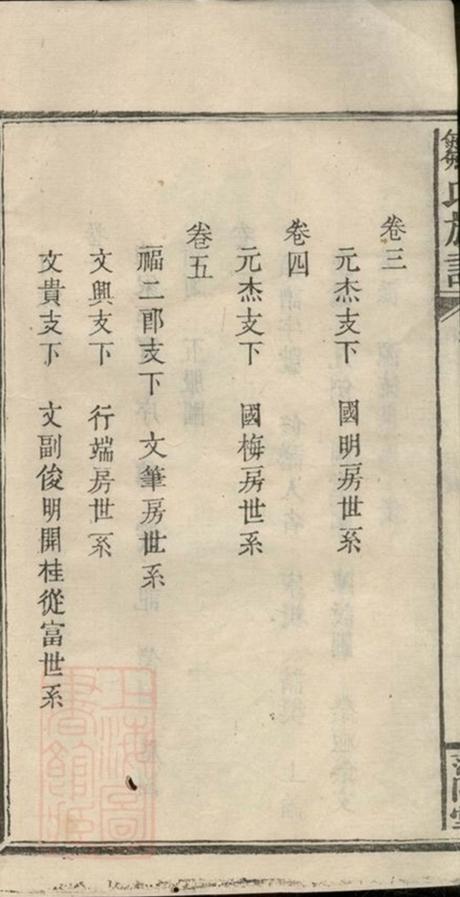 卷三
元杰支下　國明房世系
卷四
元杰支下　國梅房世系
卷五
福二郎支下　文筆房世系
文興支下　行端房世系
文貴支下　文副俊明開桂從富世系
上海圖書館藏